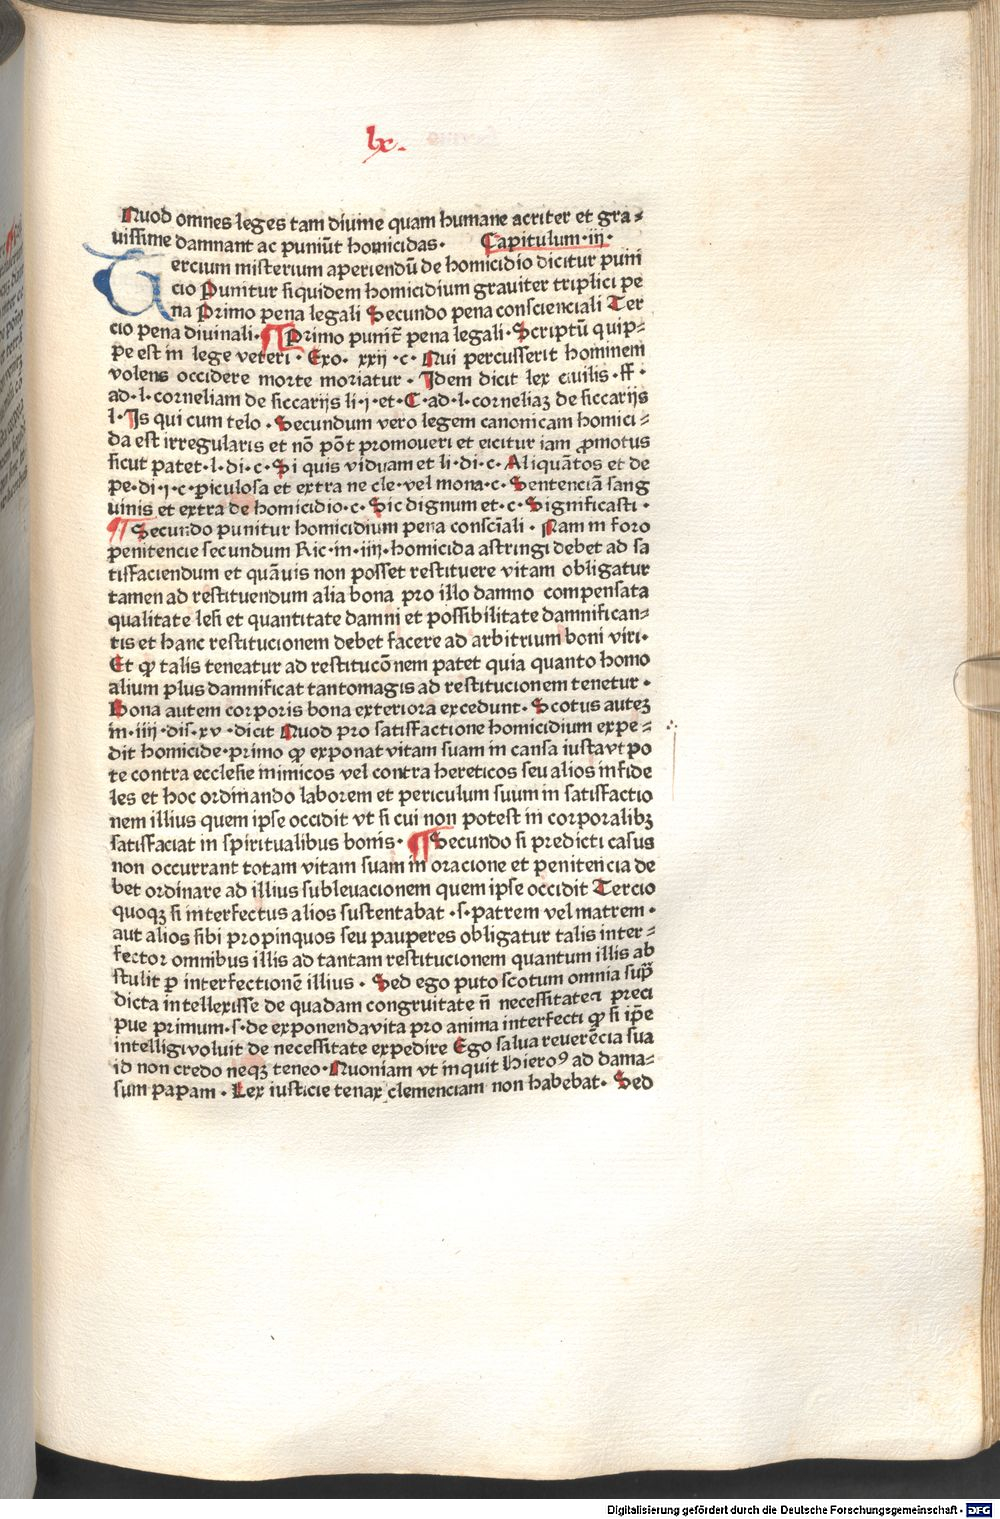 lx.
Quod omnes leges tam diuine quam humane acriter et gra⸗
uissime damnant ac puniūt homicidas· Capitulum·iij·
Tercium misterium aperiendū de homicidio dicitur puni
cio Punitur siquidem homicidium grauiter triplici pe
na Primo pena legali Secundo pena conscienciali Ter
cio pena diuinali· ¶ Primo punit̄ pena legali· Scriptū quip⸗
pe est in lege veteri· Exo· xxij·c· Qui percusserit hominem
volens occidere morte moriatur· Idem dicit lex ciuilis·ff·
ad·l·corneliam de siccarijs li·j·et·C·ad·l·corneliaꝫ de siccarijs
l·Is qui cum telo· Secundum vero legem canonicam homici⸗
da est irregularis et nō pōt promoueri et eicitur iam ꝓmotus
sicut patet·l·di·c·Si quis viduam et li·di·c·Aliquātos et de
pe·di·j·c·ꝑiculosa et extra ne cle·vel mona·c·Sentenciā sang
uinis et extra de homicidio·c·Sic dignum et·c·Significasti·
¶ Secundo punitur homicidium pena consciāli· Nam in foro
penitencie secundum Ric·in·iiij·homicida astringi debet ad sa
tisfaciendum et quāuis non posset restituere vitam obligatur
tamen ad restituendum alia bona pro illo damno compensata
qualitate lesi et quantitate damni et possibilitate damnifican⸗
tis et hanc restitucionem debet facere ad arbitrium boni viri·
Et ꝙ talis teneatur ad restitucōnem patet quia quanto homo
alium plus damnificat tantomagis ad restitucionem tenetur·
Bona autem corporis bona exteriora excedunt· Scotus auteꝫ
in·iiij·dis·xv·dicit Quod pro satisfactione homicidium expe⸗
dit homicide·primo ꝙ exponat vitam suam in causa iusta vt po
te contra ecclesie inimicos vel contra hereticos seu alios infide
les et hoc ordinando laborem et periculum suum in satisfactio
nem illius quem ipse occidit vt si cui non potest in corporalibꝫ
satisfaciat in spiritualibus bonis· ¶ Secundo si predicti casus
non occurrant totam vitam suam in oracione et penitencia de
bet ordinare ad illius subleuacionem quem ipse occidit Tercio
quoqꝫ si interfectus alios sustentabat·s·patrem vel matrem·
aut alios sibi propinquos seu pauperes obligatur talis inter⸗
fector omnibus illis ad tantam restitucionem quantum illis ab
stulit ꝑ interfectionē illius· Sed ego puto scotum omnia sup̄
dicta intellexisse de quadam congruitate n̄ necessitate preci
pue primum·s·de exponenda vita pro anima interfecti ꝙ si ip̄e
intelligi voluit de necessitate expedire Ego salua reuerēcia sua
id non credo neqꝫ teneo· Quoniam vt inquit Hieroꝰ ad dama⸗
sum papam· Lex iusticie tenax clemenciam non habebat· Sed
Digitalisierung gefördert durch die Deutsche Forschungsgemeinschaft - DFG